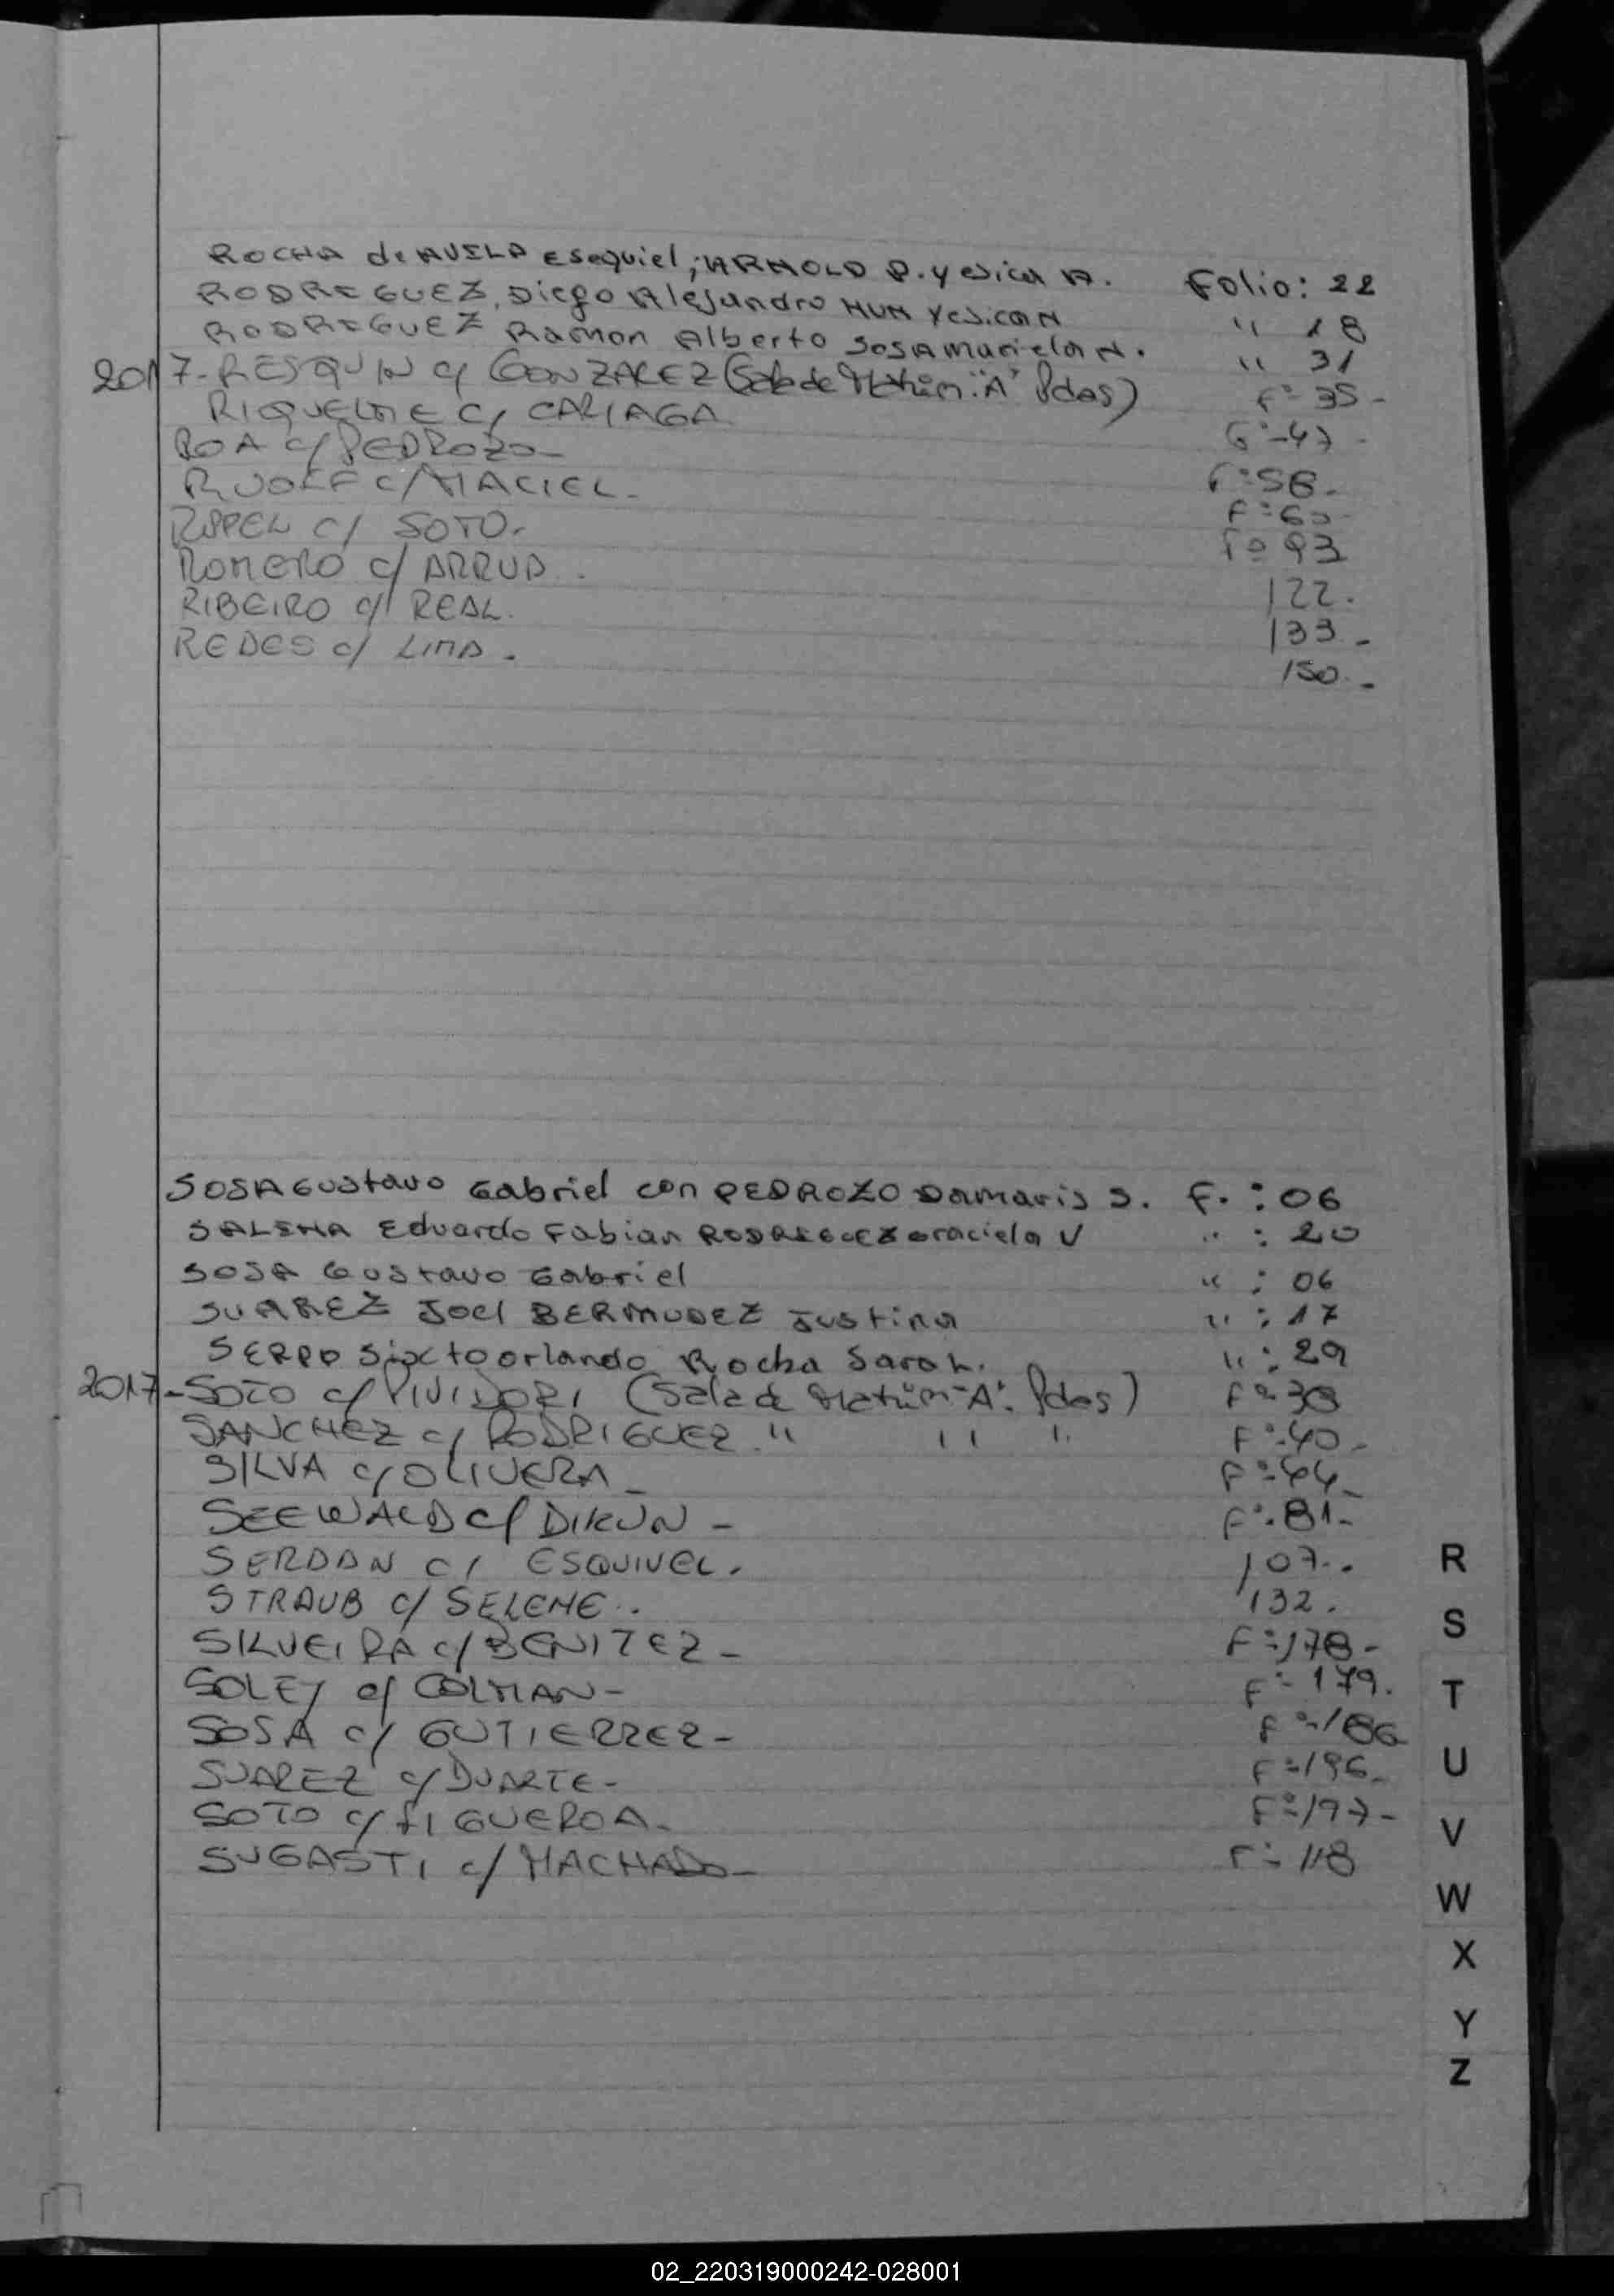 ROCHA de AVILA Esequiel, ARNOLD P. Yesica A. Folio: 22
RODRIGUEZ, Diego Alejandro HUM Yesica N " 18
RODRIGUEZ Ramon Alberto SOSA Mariela N. " 31
2017-RESQUIN c/ GONZALEZ (Sala de Matrim. "A" Pdas) Fº 35-
RIQUELME C/ CARIAGA Fº-47-
ROA c/ PEDROZO- Fº 56-
RUOFF c/ MACIEL- Fº 60-
RIPPEL C/ SOTO. Fº 93
ROMERO c/ ARRUA. 122.
RIBEIRO c/ REAL. 133.-
REDES c/ LIMA. 150.-
SOSA Gustavo Gabriel con PEDROZO Damaris S. F. : 06
SALINA Eduardo Fabian RODRIGUEZ Graciela V " : 20
SOSA Gustavo Gabriel " : 06
SUAREZ Joel BERMUDEZ Justina " : 17
Sixto Orlando Rocha Sara " : 29
2017-SOTO c/ PIVIDORI (Sala de Matrim "A". Pdas) Fº 38
SANCHEZ c/ RODRIGUEZ " " " Fº-40-
SILVA c/ OLIVERA- Fº-44-
SEEWALD c/ DIKUN- Fº-81-
SERDAN C/ ESQUIVEL. 107-.
STRAUB c/ SELEME. 132.
SILVEIRA c/ BENITEZ- Fº 178-
SOLEY c/ COLMAN- Fº 179.
SOSA c/ GUTIERREZ- Fº-186
SUAREZ c/ DUARTE- Fº 196-
SOTO c/ FIGUEROA- Fº 197-
SUGASTI c/ MACHADO- Fº 118
R
S
T
U
V
W
X
Y
Z
02_220319000242-028001